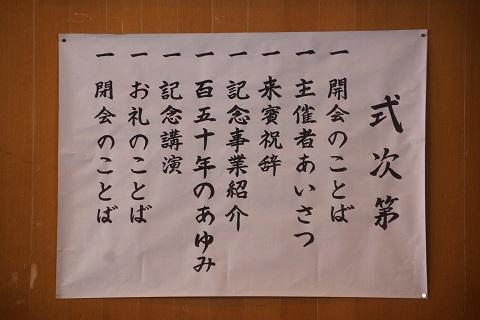 式次第
一 開会のことば
一 主催者あいさつ
一 来賓祝辞
一 記念事業紹介
一 百五十年のあゆみ
一 記念講演
一 お礼のことば
一 閉会のことば